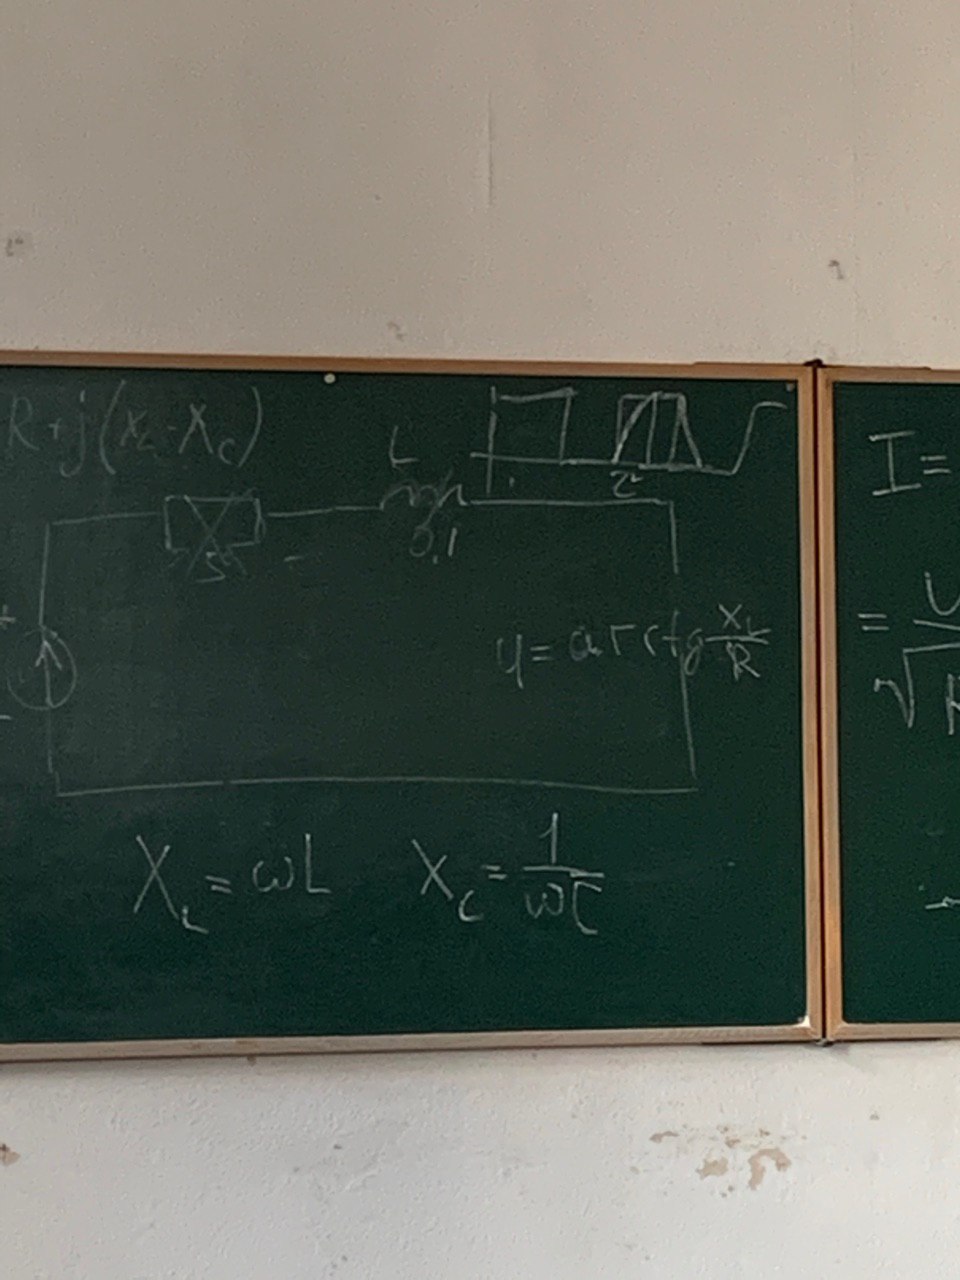 R + j(X_L - X_C)
L
1
2
5
0,1
φ = arctg X_L/R
X_L = ωL X_C = 1/ωC
I =
= U
√R